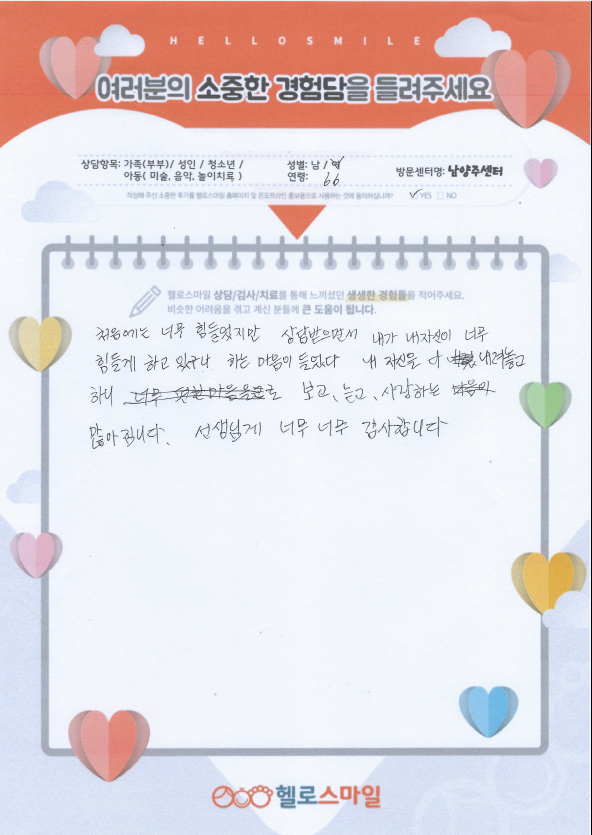 HELLOSMILE
여러분의 소중한 경험담을 들려주세요
상담항목: 가족(부부)/ 성인 / 청소년 /
아동( 미술, 음악, 놀이치료 )
성별: 남 / 여
연령: 66
방문센터명: 남양주센터
작성해 주신 소중한 후기를 헬로스마일 홈페이지 및 온오프라인 홍보용으로 사용하는 것에 동의하십니까? ✓ YES □ NO
헬로스마일 상담/검사/치료를 통해 느끼셨던 생생한 경험들을 적어주세요.
비슷한 어려움을 겪고 계신 분들께 큰 도움이 됩니다.
처음에는 너무 힘들었지만 상담받으면서 내가 내자신이 너무
힘들게 하고 있구나 하는 마음이 들었다 내 자신을 다 내려놓고
하니 너무 편한마음을으로 보고, 듣고, 사랑하는 마음이
많아집니다. 선생님게 너무 너무 감사합니다
헬로스마일